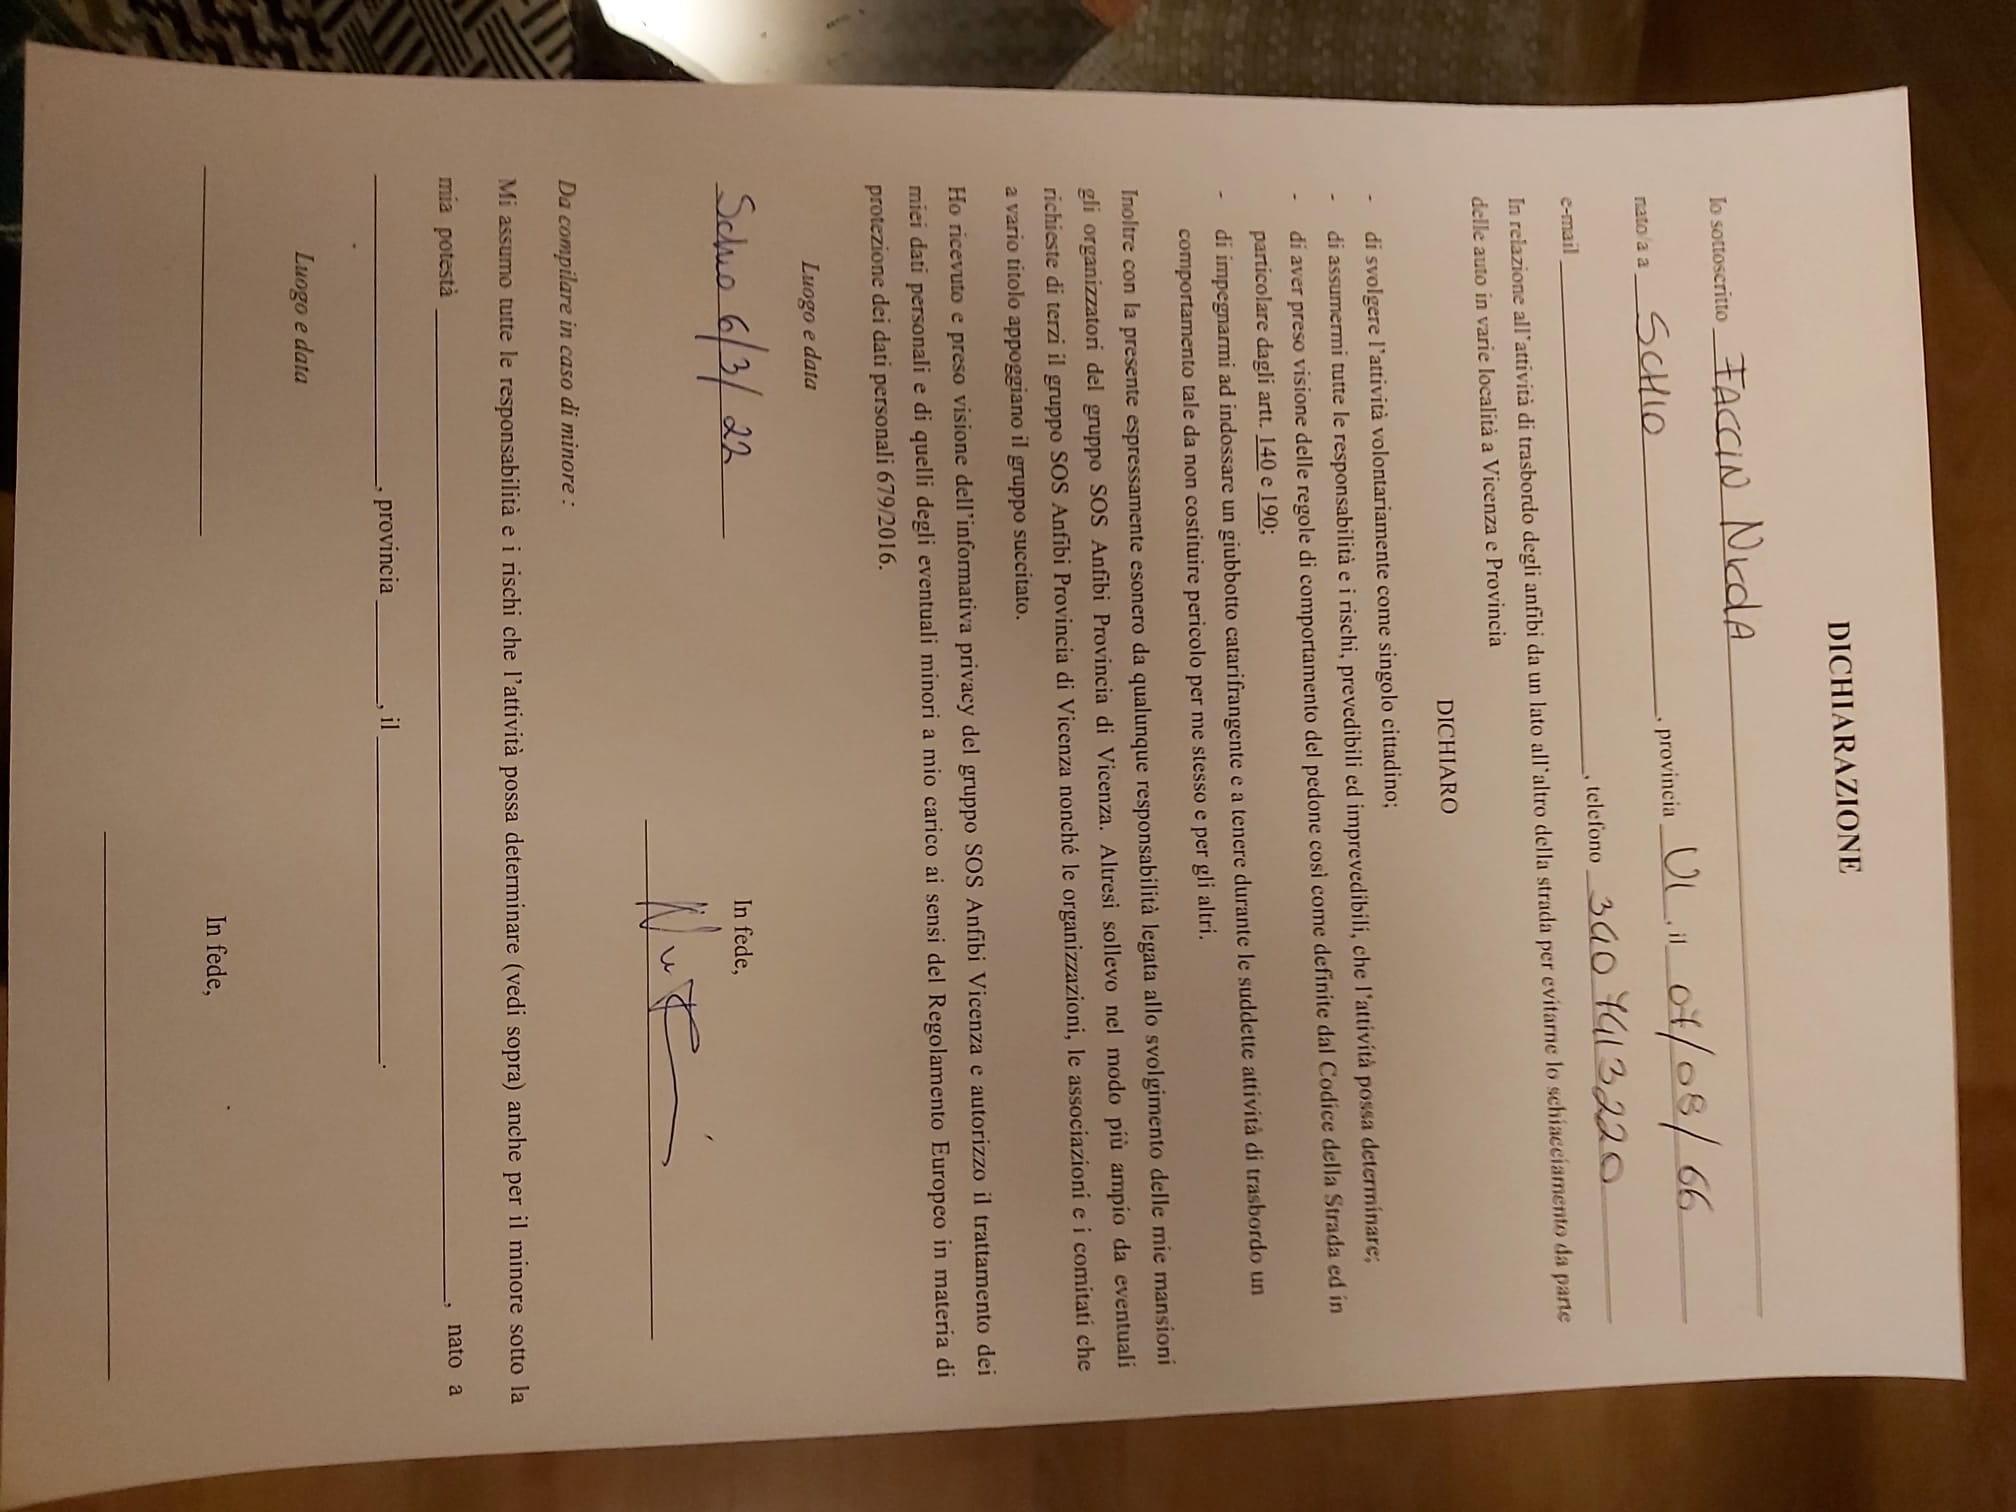 DICHIARAZIONE
Io sottoscritto FACCIN NICOLA
nato/a a SCHIO, provincia VI, il 07/08/66
e-mail , telefono 340 7413220
In relazione all'attività di trasbordo degli anfibi da un lato all'altro della strada per evitarne lo schiacciamento da parte
delle auto in varie località a Vicenza e Provincia
DICHIARO
- di svolgere l'attività volontariamente come singolo cittadino;
- di assumermi tutte le responsabilità e i rischi, prevedibili ed imprevedibili, che l'attività possa determinare;
- di aver preso visione delle regole di comportamento del pedone così come definite dal Codice della Strada ed in
particolare dagli artt. 140 e 190;
- di impegnarmi ad indossare un giubbotto catarifrangente e a tenere durante le suddette attività di trasbordo un
comportamento tale da non costituire pericolo per me stesso e per gli altri.
Inoltre con la presente espressamente esonero da qualunque responsabilità legata allo svolgimento delle mie mansioni
gli organizzatori del gruppo SOS Anfibi Provincia di Vicenza. Altresì sollevo nel modo più ampio da eventuali
richieste di terzi il gruppo SOS Anfibi Provincia di Vicenza nonché le organizzazioni, le associazioni e i comitati che
a vario titolo appoggiano il gruppo succitato.
Ho ricevuto e preso visione dell'informativa privacy del gruppo SOS Anfibi Vicenza e autorizzo il trattamento dei
miei dati personali e di quelli degli eventuali minori a mio carico ai sensi del Regolamento Europeo in materia di
protezione dei dati personali 679/2016.
Luogo e data
In fede,
Schio 6/3/22
Da compilare in caso di minore :
Mi assumo tutte le responsabilità e i rischi che l'attività possa determinare (vedi sopra) anche per il minore sotto la
mia potestà , nato a
, provincia , il .
Luogo e data
In fede,